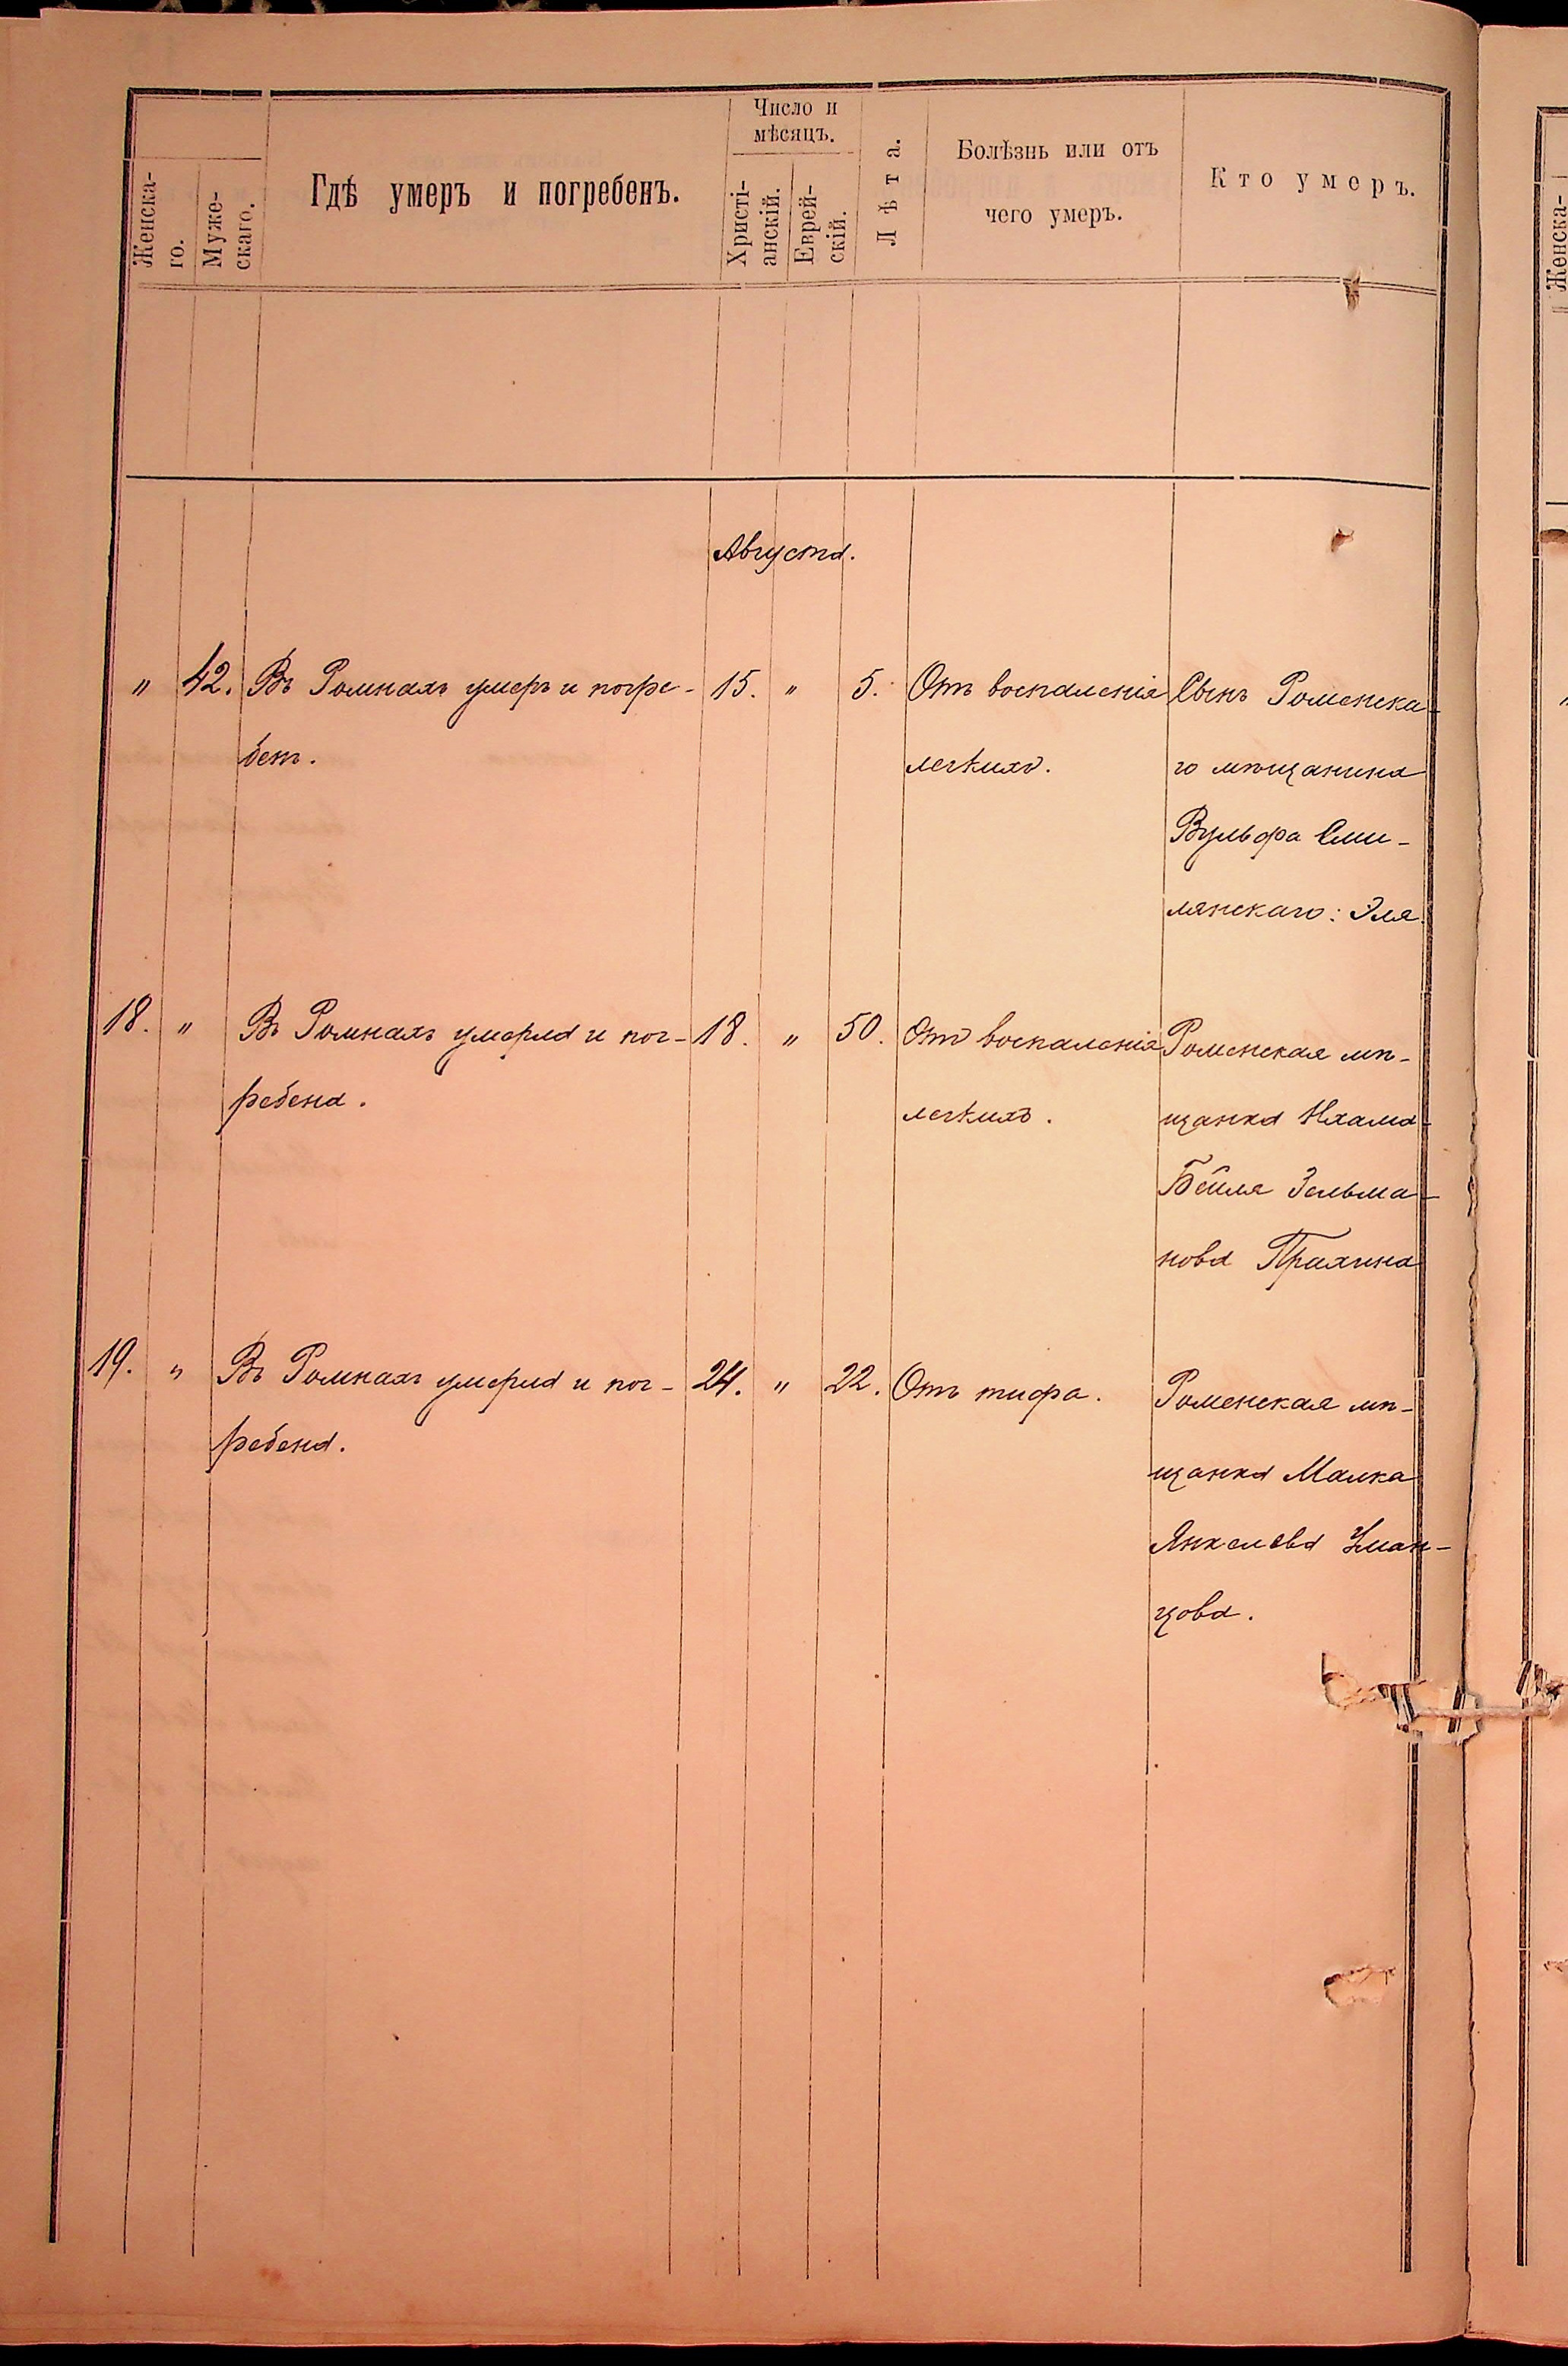 Женска-
го.
Муже-
скаго.
Гдѣ умеръ и погребенъ.
Число и
мѣсяцъ.
Христі-
анскій.
Еврей-
скій.
Лѣта.
Болѣзнь или отъ
чего умеръ.
Кто умеръ.
Августа.
" 42. Въ Ромнахъ умеръ и погре- 15. " 5. Отъ воспаленія Сынъ Роменска-
бенъ. легкихъ. го мѣщанина
Вульфа Сми-
лянскаго: Эля.
18. " Въ Ромнахъ умерла и пог- 18. " 50. Отъ воспаленія Роменская мѣ-
ребена. легкихъ. щанка Нхама-
Бейля Зельма-
нова
19. " Въ Ромнахъ умерла и пог- 24. " 22. Отъ тифа. Роменская мѣ-
ребена. щанка Малка
Янкелева Уман-
цова.
Женска-
"